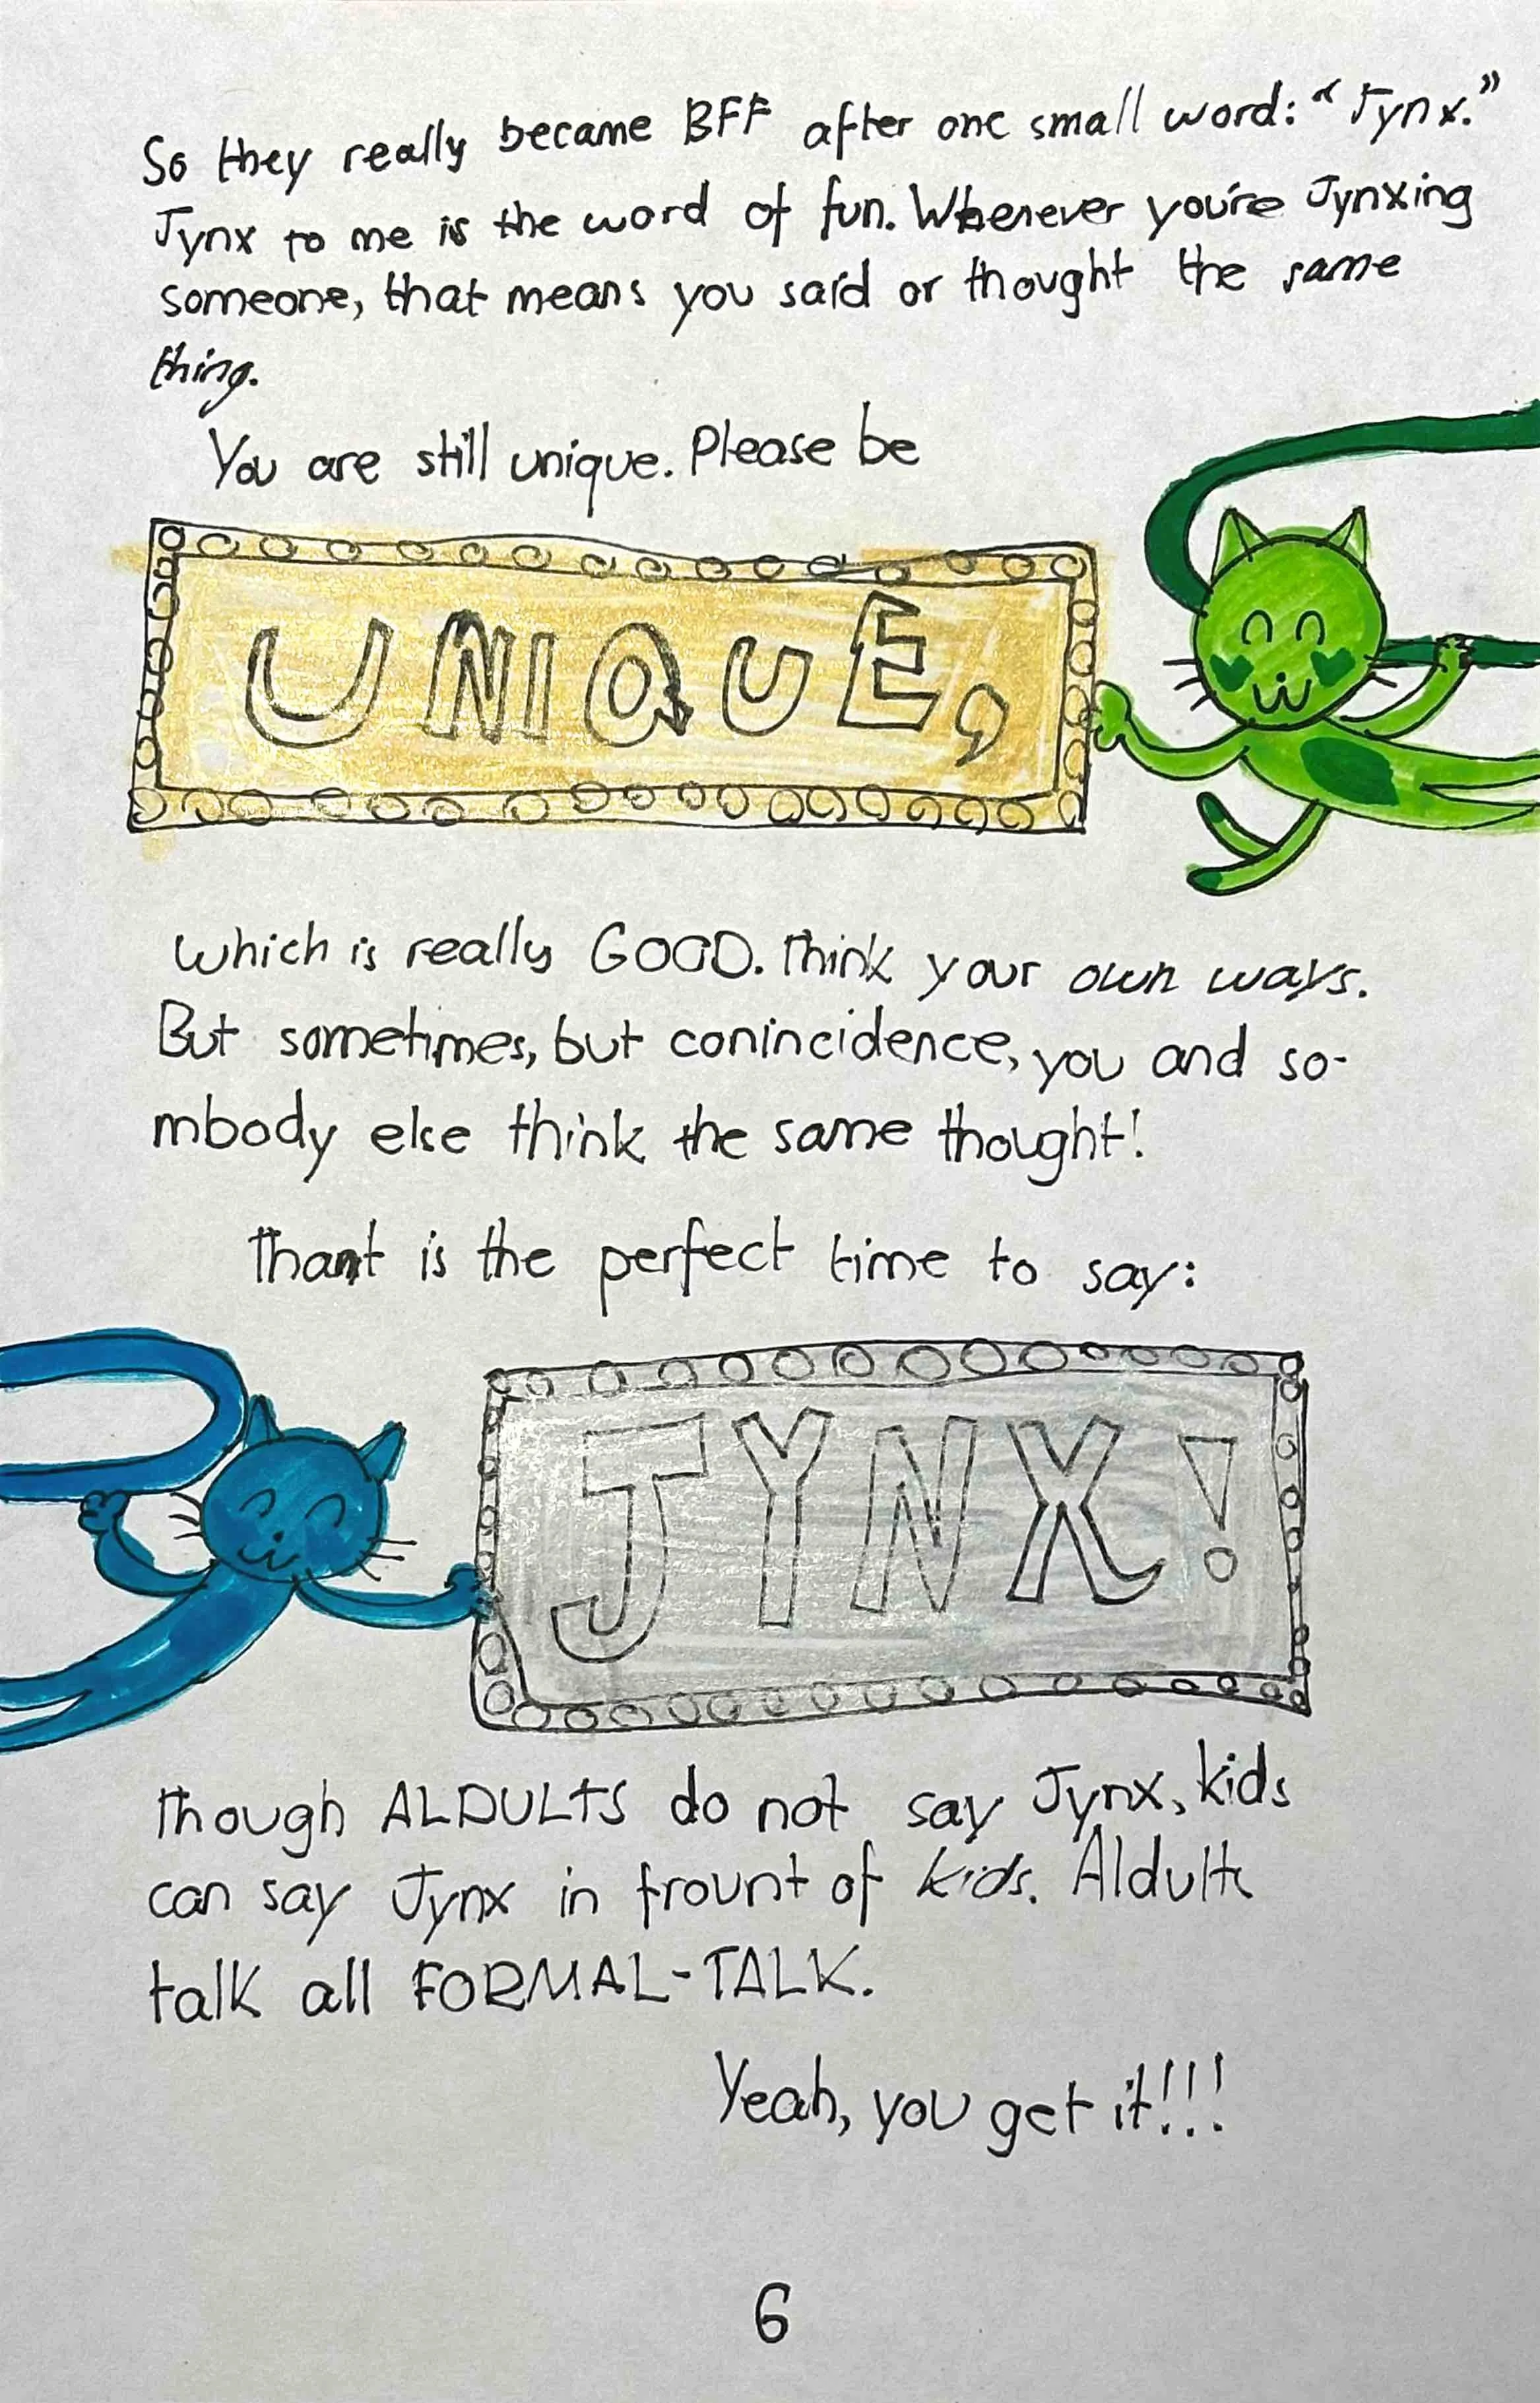 So they really became BFF after one small word: "Jynx."
Jynx to me is the word of fun. Whenever you're Jynxing
someone, that means you said or thought the same
thing.
You are still unique. Please be
UNIQUE,
which is really GOOD. Think your own ways.
But sometimes, but conincidence, you and so-
mbody else think the same thought!
That is the perfect time to say:
JYNX!
Though ALDULTS do not say Jynx, kids
can say Jynx in frount of kids. Aldults
talk all FORMAL-TALK.
Yeah, you get it!!!
6